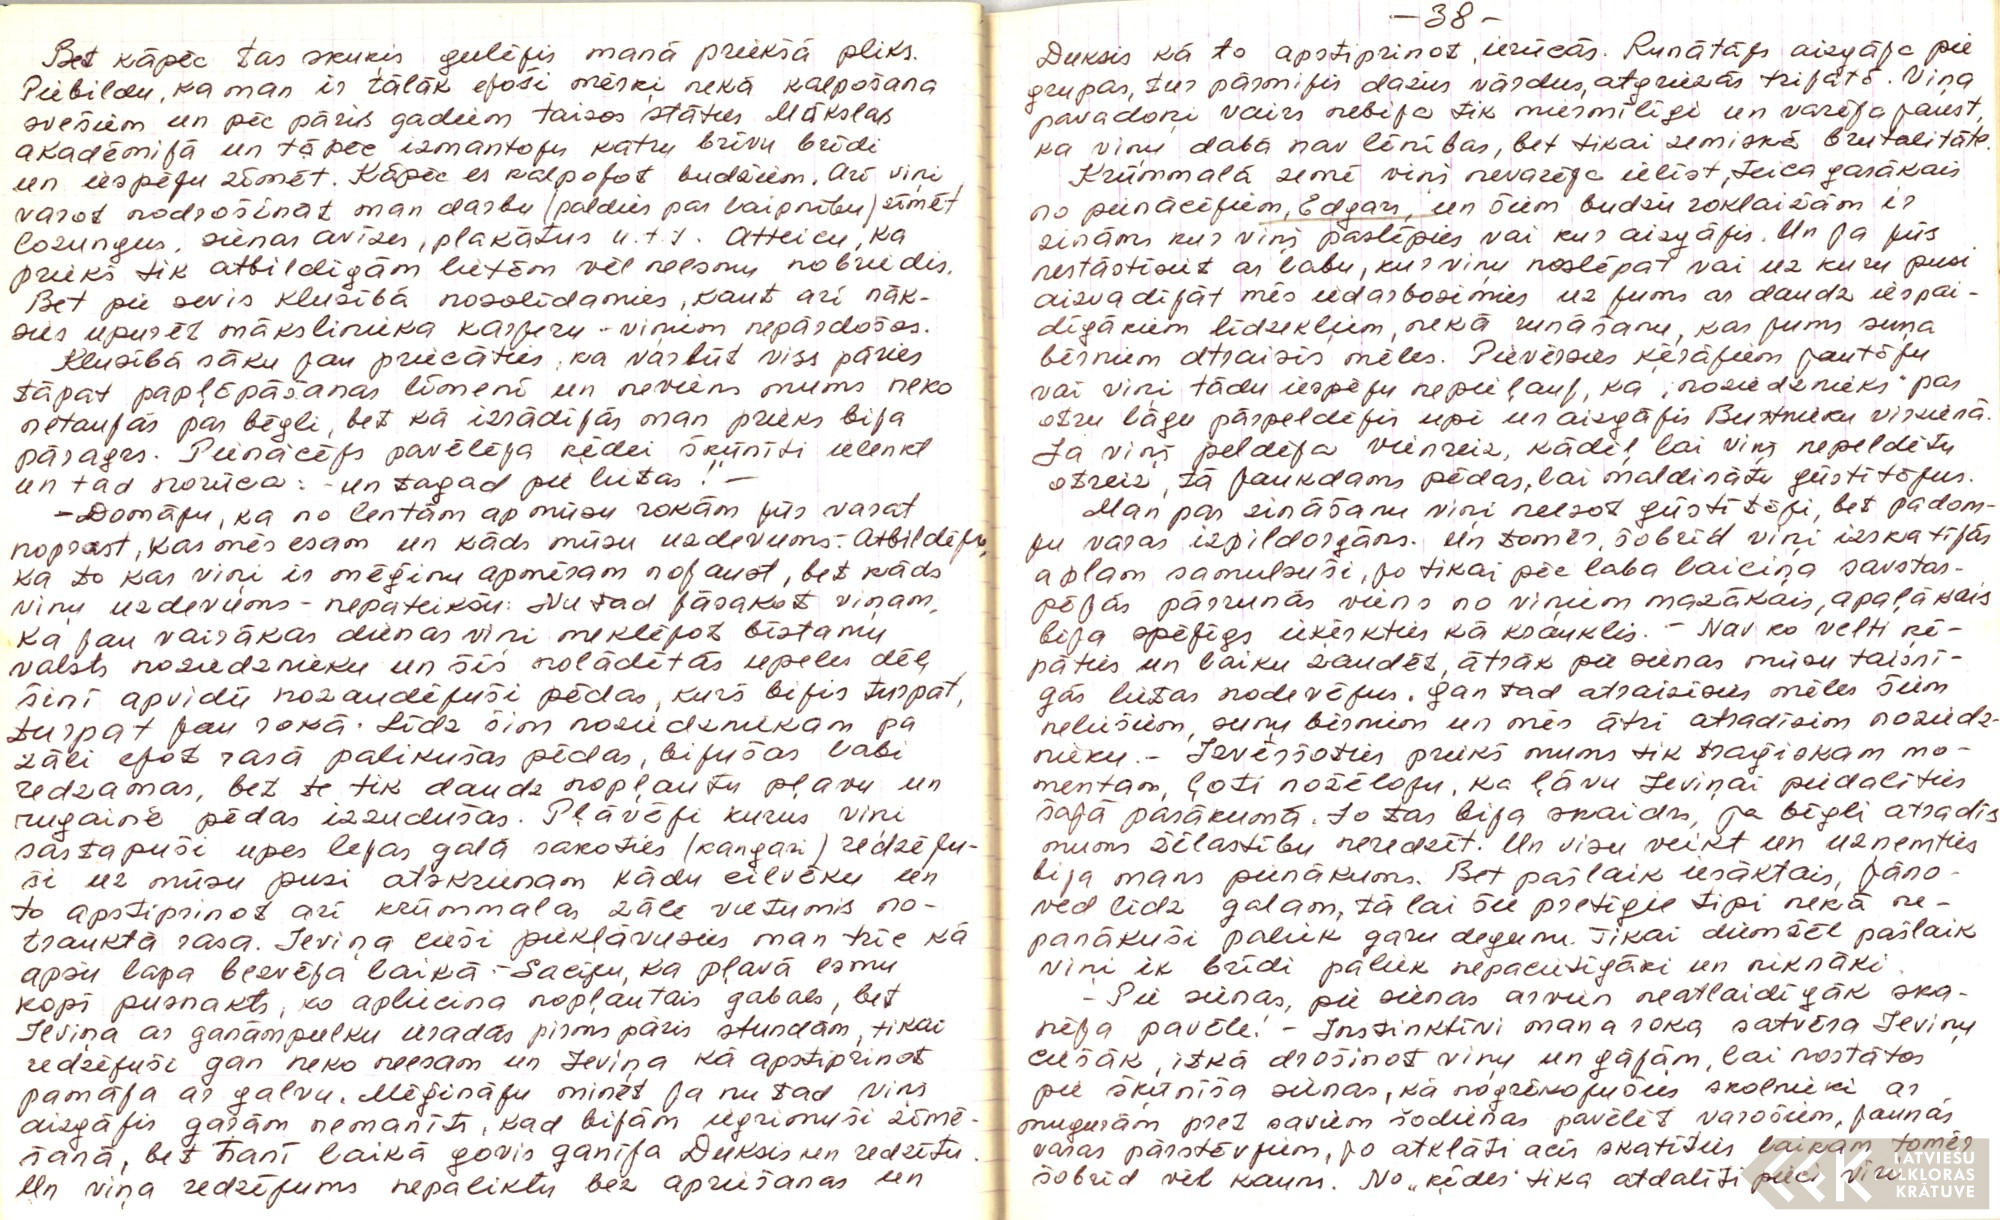 Bet kāpēc tas skuķis gulējis manā priekšā pliks.
Piebildu, ka man ir tālāk ejoši mērķi nekā kalpošana
svešiem un pēc pāris gadiem taisos stāties Mākslas
akadēmijā un tāpēc izmantoju katru brīvu brīdi
un iespēju zīmēt. Kāpēc es kalpojot budžiem. Arī viņi
varot nodrošināt man darbu (paldies par laipnību) zīmēt
lozungus, sienas avīzes, plakātus u.t.t. Atteicu, ka
priekš tik atbildīgām lietām vēl neesmu nobriedis.
Bet pie sevis klusībā nosolīdamies, kaut arī nāk-
sies upurēt mākslinieka karjeru - viņiem nepārdošos.
Klusībā sāku jau priecāties, ka varbūt viss pāries
tāpat papļāpāšanas līmenī un neviens mums neko
netaujās par bēgli, bet kā izrādījās man prieks bija
pāragrs. Pienācējs pavēlēja ķēdei šķūnīti ielenkt
un tad norūca: - un tagad pie lietas! -
- Domāju, ka no lentām ap mūsu rokām jūs varat
noprast, kas mēs esam un kāds mūsu uzdevums - Atbildēju,
ka to kas viņi ir mēģinu apmēram nojaust, bet kāds
viņu uzdevums - nepateikšu. Nu tad jāsakot viņam,
ka jau vairākas dienas viņi meklējot bīstamu
valsts noziedznieku un šīs nolādētās upeles dēļ
šinī apvidū nozaudējuši pēdas, kurš bijis turpat,
turpat jau rokā. Līdz šim noziedzniekam pa
zāli ejot rasā palikušas pēdas, bijušas labi
redzamas, bet te tik daudz nopļautu pļavu un
rugainē pēdas izzudušas. Pļāvēji kurus viņi
sastapuši upes lejas galā sakoties (kangari) redzēju-
ši uz mūsu pusi atskrienam kādu cilvēku un
to apstiprinot arī krūmmalas zālē vietumis no-
trauktā rasa. Ieviņa cieši piekļāvusies man trīc kā
apšu lapa bezvēja laikā. - Sacīju, ka pļavā esmu
kopš pusnakts, ko apliecina nopļautais gabals, bet
Ieviņa ar ganāmpulku ieradās pirms pāris stundām, tikai
redzējuši gan neko neesam un Ieviņa kā apstiprinot
pamāja ar galvu. Mēģināju minēt ja nu tad viņš
aizgājis garām nemanīts, kad bijām iegrimuši zīmē-
šanā, bet tanī laikā govis ganīja Duksis un redzētu.
Un viņa redzējums nepaliktu bez apriešanas un
- 38 -
Duksis kā to apstiprinot, ierūcās. Runātājs aizgāja pie
grupas, tur pārmijis dažus vārdus, atgriezās trijatā. Viņa
pavadoņi vairs nebija tik miermīlīgi un varēja jaust,
ka viņu dabā nav lēnības, bet tikai zemiskā brutalitāte.
Krūmmalā zemē viņš nevarēja ielīst, teica garākais
no pienācējiem, Edgars, un šiem budžu roklaižām ir
zināms kur viņš paslēpies vai kur aizgājis. Un ja jūs
nestāstīsiet ar labu, kur viņu noslēpāt vai uz kuru pusi
aizvadījāt mēs iedarbosimies uz jums ar daudz iespai-
dīgākiem līdzekļiem, nekā runāšanu, kas jums suņa
bērniem atraisīs mēles. Pievērsies ķērājiem jautāju
vai viņi tādu iespēju nepieļauj, ka „noziedznieks" par
otru lāgu pārpeldējis upi un aizgājis Burtnieku virzienā.
Ja viņš peldēja vienreiz, kādēļ lai viņš nepeldētu
otreiz, tā jaukdams pēdas, lai maldinātu gūstītājus.
Man par zināšanu viņi neesot gūstītāji, bet padom-
ju varas izpildorgāns. Un tomēr, šobrīd viņi izskatījās
aplam samulsuši, jo tikai pēc laba laiciņa savstar-
pējās pārrunās viens no viņiem mazākais, apaļākais
bija spējīgs ieķērkties kā krauklis. - Nav ko velti ņē-
mties un laiku zaudēt, ātrāk pie sienas mūsu taisnī-
gās lietas nodevējus. Gan tad atraisīsies mēles šiem
neliešiem, suņu bērniem un mēs ātri atradīsim noziedz-
nieku. - Izvēršoties priekš mums tik traģiskam mo-
mentam, ļoti nožēloju, ka ļāvu Ieviņai piedalīties
šajā pasākumā. Jo tas bija skaidrs, ja bēgli atradīs
mums žēlastību neredzēt. Un visu veikt un uzņemties
bija mans pienākums. Bet pašlaik iesāktais, jāno-
ved līdz galam, tā lai šie pretīgie tipi nekā ne-
panākuši paliek garu degunu. Tikai diemžēl pašlaik
viņi ik brīdi paliek nepacietīgāki un niknāki.
- Pie sienas, pie sienas arvien neatlaidīgāk ska-
nēja pavēle! - Instinktīvi mana roka satvēra Ieviņu
ciešāk, itkā drošinot viņu un gājām, lai nostātos
pie šķūnīša sienas, kā nogrēkojušies skolnieki ar
mugurām pret saviem šodienas pavēlēt varošiem, jaunās
varas pārstāvjiem, jo atklāti acīs skatīties laikam tomēr
šobrīd vēl kauns. No „ķēdes" tika atdalīti pieci vīri
LATVIEŠU
FOLKLORAS
KRĀTUVE